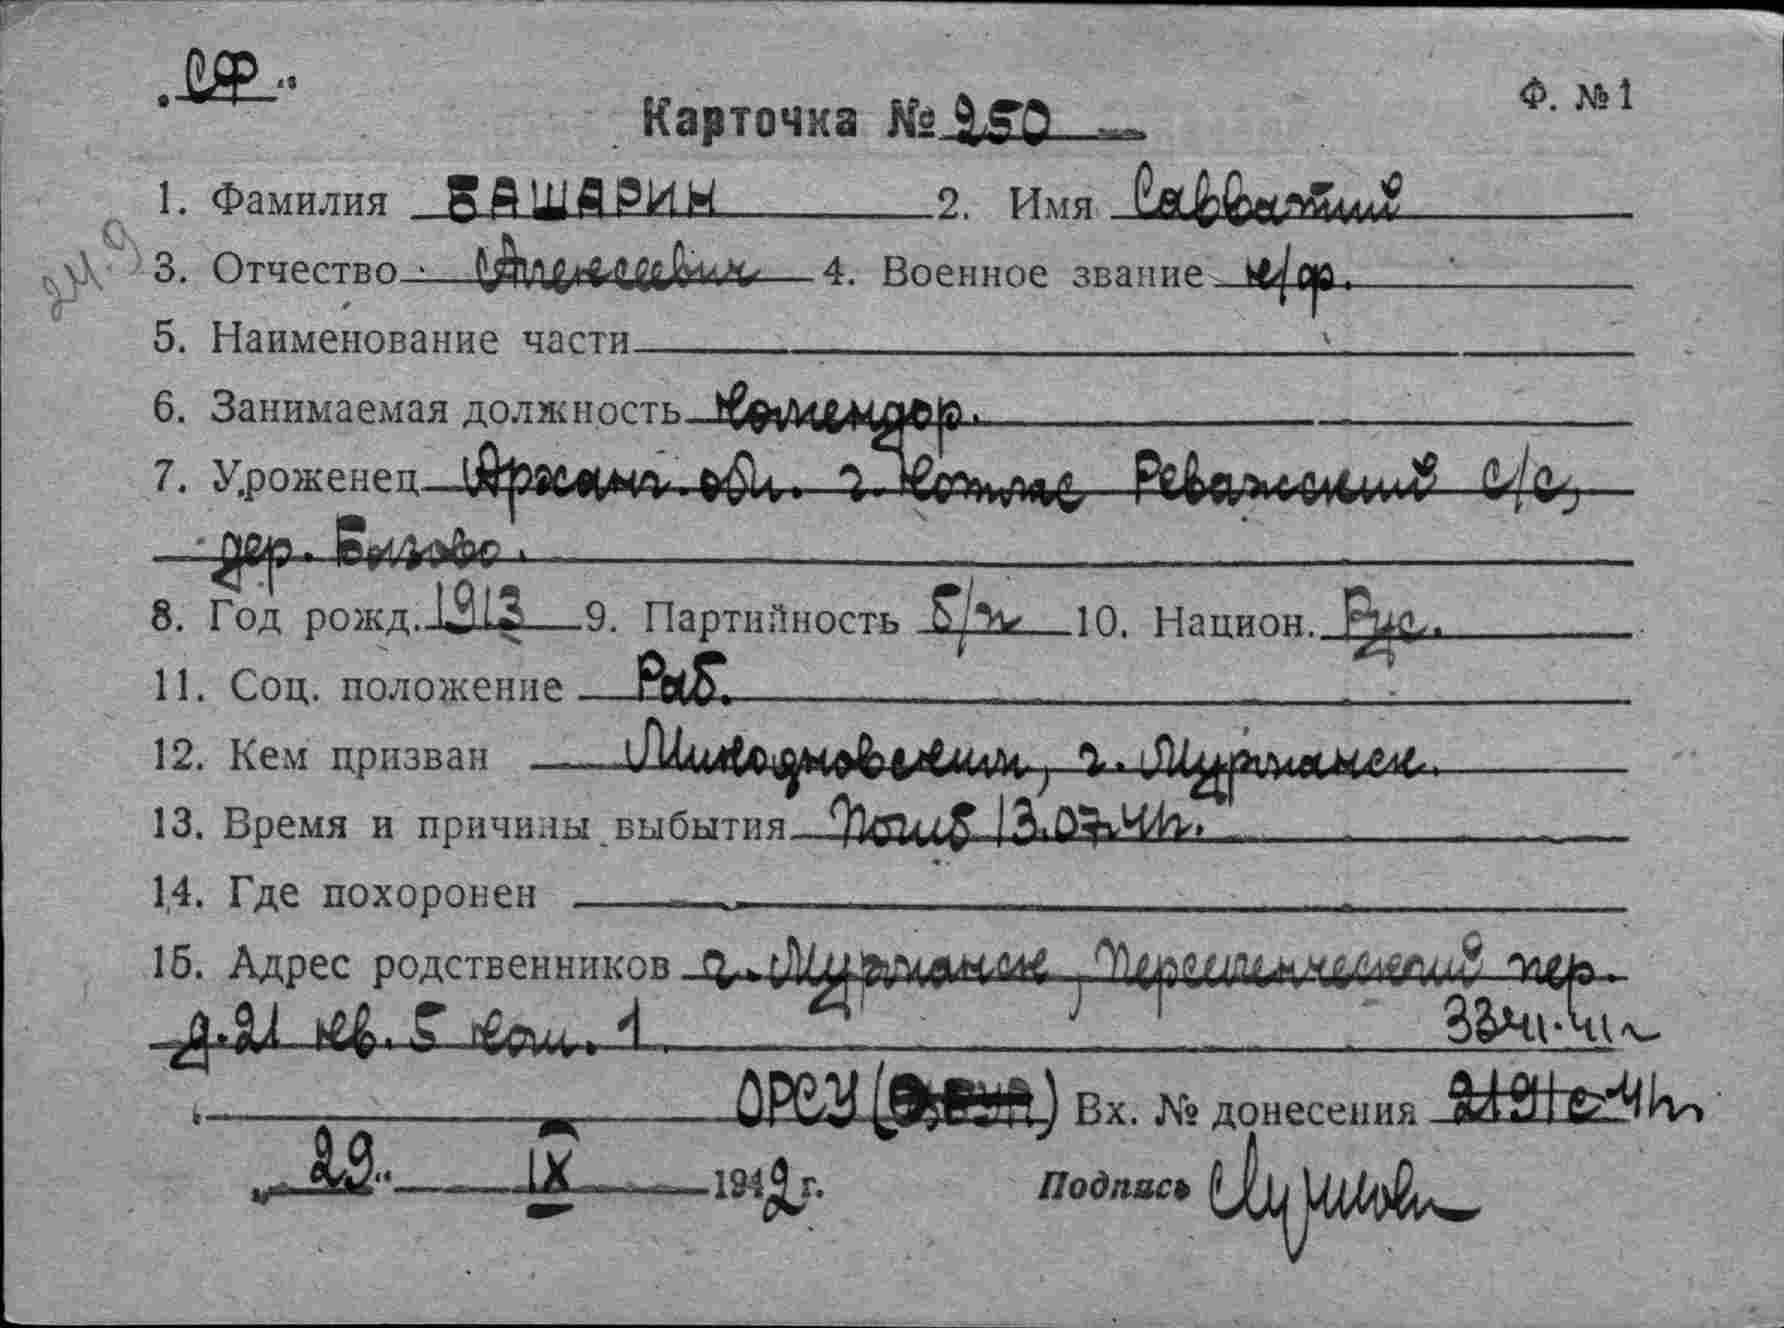 „СФ"
Ф. №1
Карточка № 250
1. Фамилия БАШАРИН 2. Имя Савватий
3. Отчество Алексеевич 4. Военное звание к/фр.
5. Наименование части
6. Занимаемая должность Комендор.
7. Уроженец Арханг. обл. г. Котлас Реважский с/с,
дер. Бызово.
8. Год рожд. 1913 9. Партийность б/п 10. Национ. Рус.
11. Соц. положение Раб.
12. Кем призван г. Мурманск.
13. Время и причины выбытия Погиб 13.07.41г.
14. Где похоронен
15. Адрес родственников г. Мурманск, пер.
д. 21 кв. 5 ком. 1.
ОРСУ ( ) Вх. № донесения
„29" IX 1942 г. Подпись